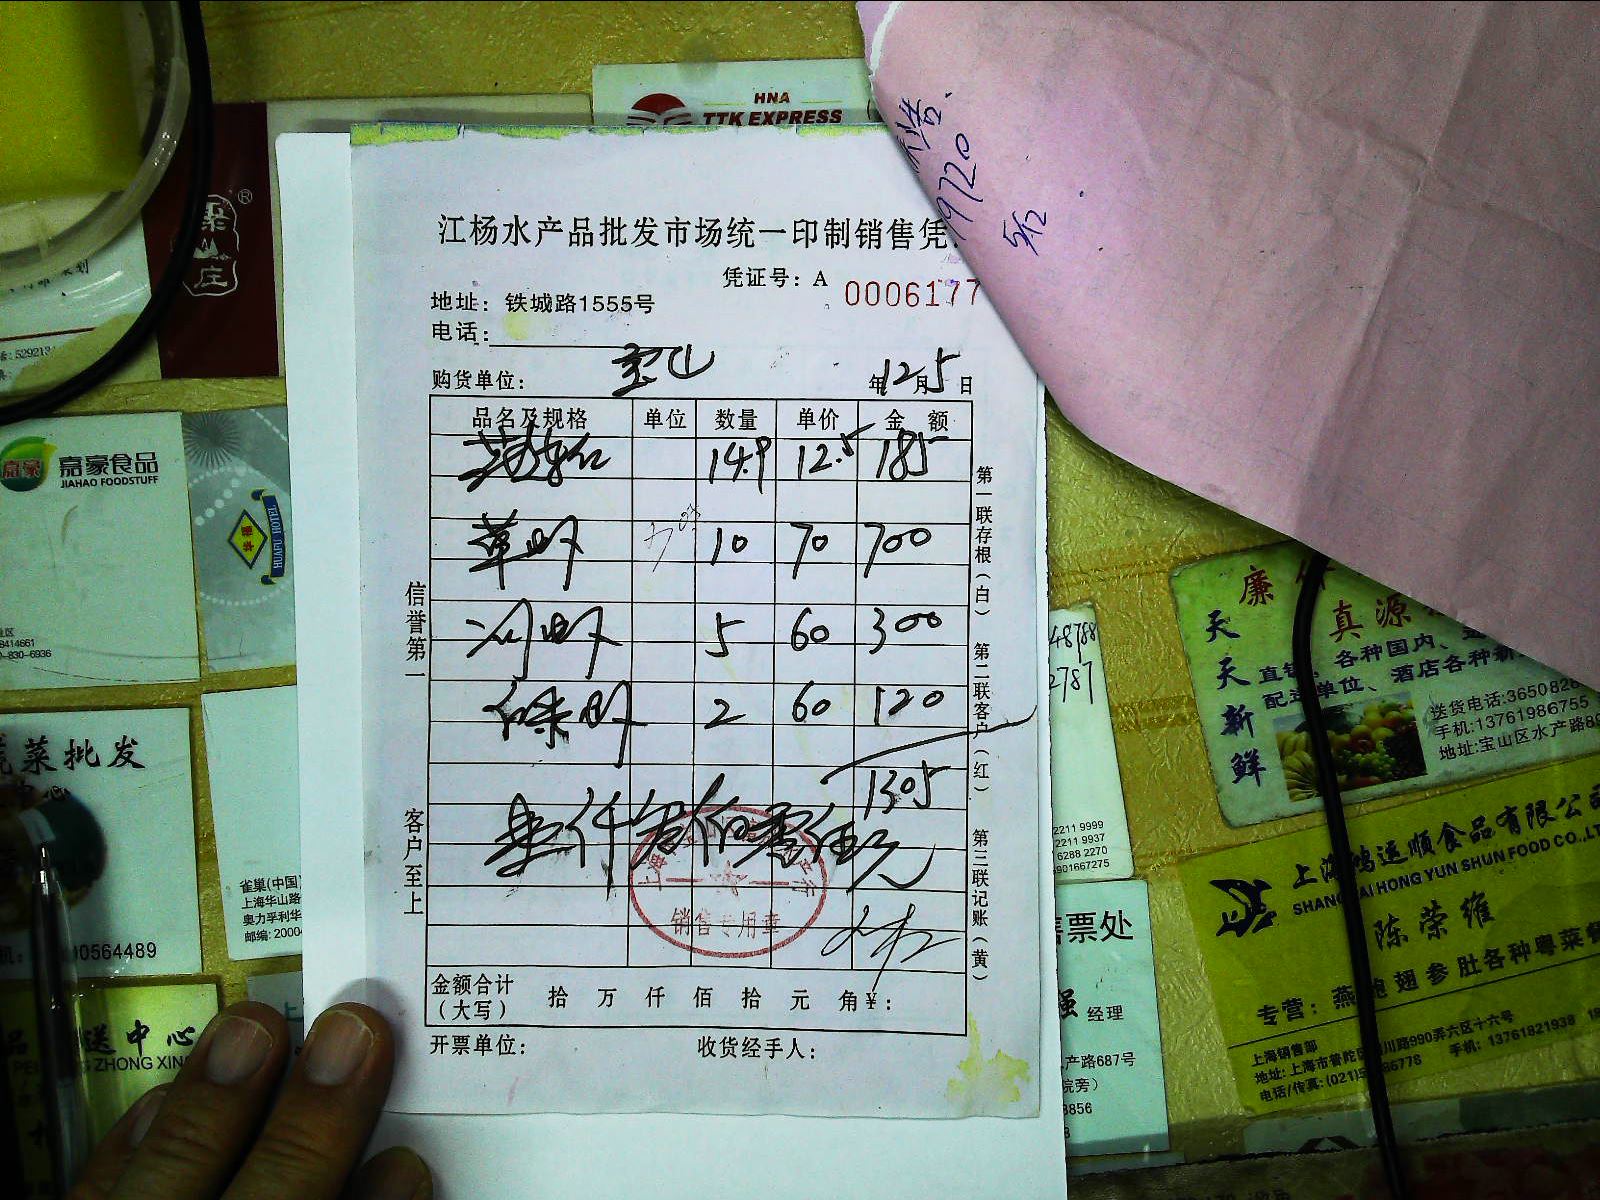 HNA
TTK EXPRESS
19720
江杨水产品批发市场统一印制销售凭
凭证号：A 0006177
地址：铁城路1555号
电话：
购货单位： 宝山 年12月5日
品名及规格 单位 数量 单价 金 额
14.9 12.5 185
草虾 10 70 700
河虾 5 60 300
2 60 120
1305
壹仟叁佰零伍元
销售专用章
金额合计（大写） 拾 万 仟 佰 拾 元 角 ¥：
开票单位： 收货经手人：
信誉第一
客户至上
第一联存根（白） 第二联客户（红） 第三联记账（黄）
山庄
®
嘉豪
嘉豪食品
JIAHAO FOODSTUFF
8414661
0-830-6936
HUAFU HOTEL
菜批发
中心
0564489
雀巢(中国)
上海华山路
奥力孚利华
邮编: 2000
送中心
ZHONG XIN
48788
2787
2211 9999
2211 9937
6288 2270
5901667275
售票处
强 经理
产路687号
院旁）
8856
天天新鲜
廉
真源
直销、各种国内、
配送单位、酒店各种新
送货电话:3650826
手机:13761986755
地址:宝山区水产路
上海鸿运顺食品有限公司
SHANGHAI HONG YUN SHUN FOOD CO.,LT
陈荣维
专营：燕鲍翅参肚各种粤菜餐
上海销售部
地址:上海市普陀区铜川路990弄六区十六号
电话/传真:(021)5
86778
手机：13761821938